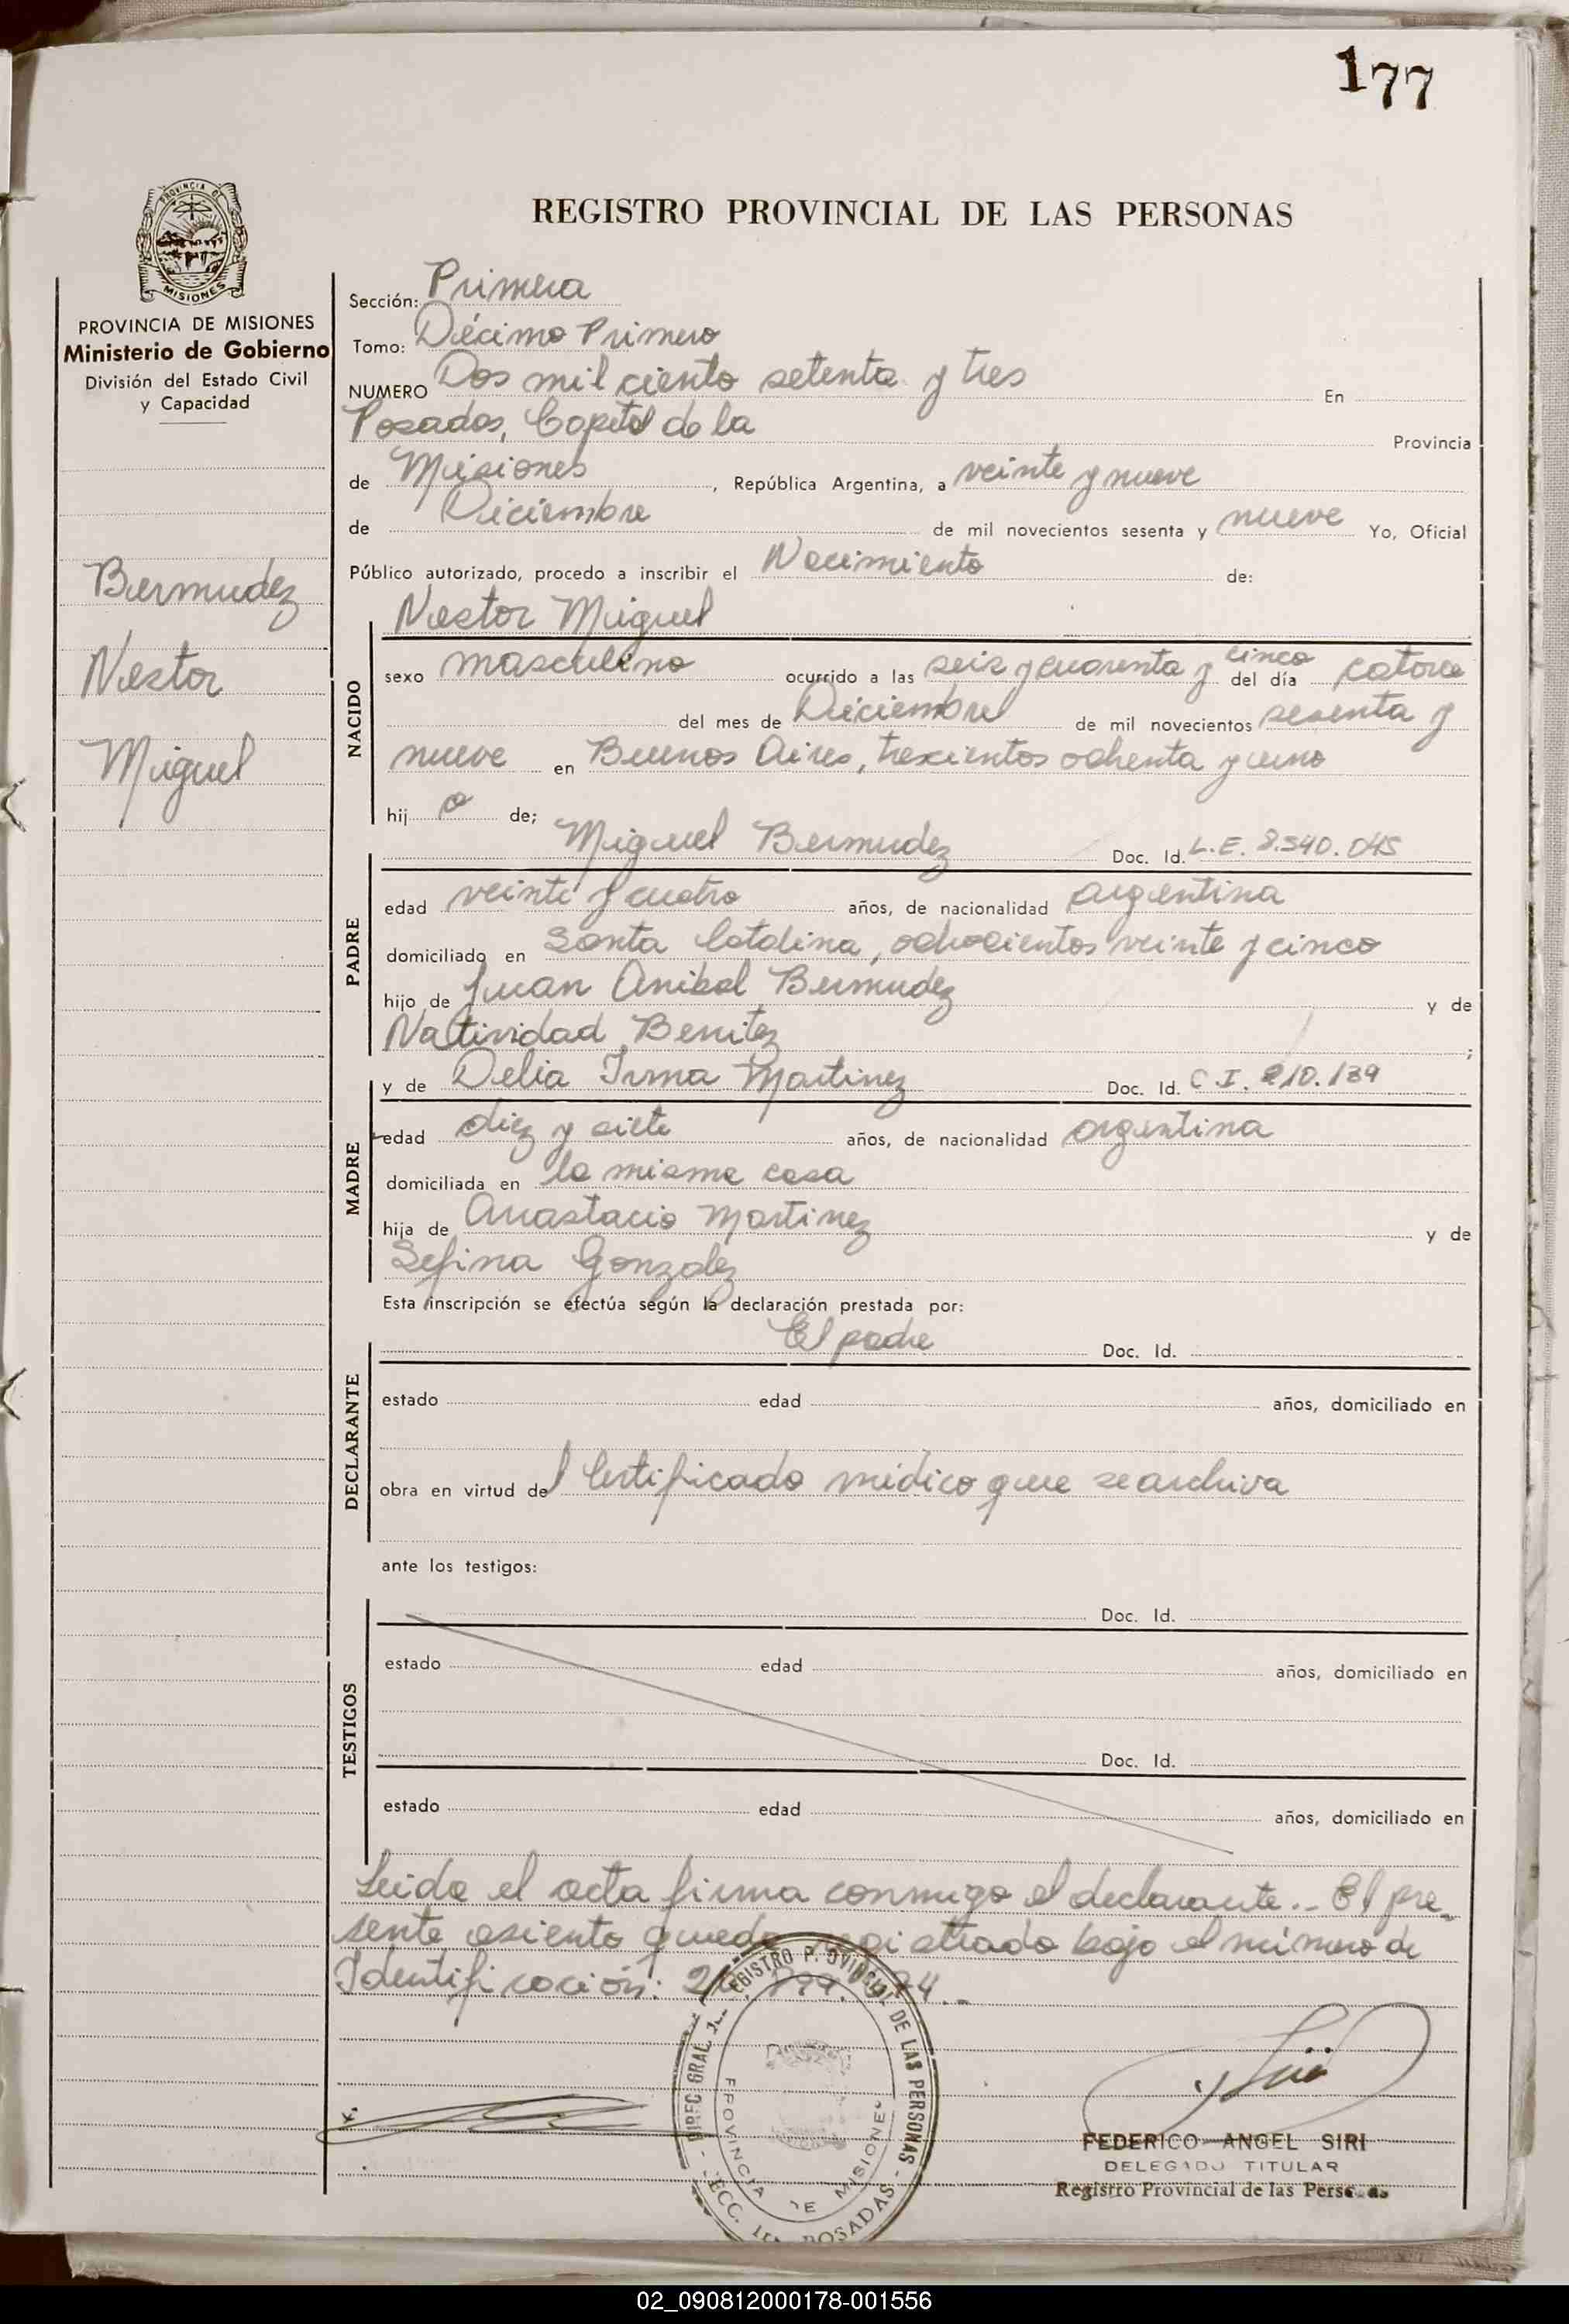 177
PROVINCIA DE
MISIONES
REGISTRO PROVINCIAL DE LAS PERSONAS
PROVINCIA DE MISIONES
Ministerio de Gobierno
División del Estado Civil
y Capacidad
Bermudez
Nestor
Miguel
Sección: Primera
Tomo: Décimo Primero
NUMERO Dos mil ciento setenta y tres En
Posadas, Capital de la Provincia
de Misiones, República Argentina, a veinte y nueve
de Diciembre de mil novecientos sesenta y nueve Yo, Oficial
Público autorizado, procedo a inscribir el Nacimiento de:
NACIDO
Nestor Miguel
sexo masculino ocurrido a las seis y cuarenta y cinco del día catorce
del mes de Diciembre de mil novecientos sesenta y
nueve en Buenos Aires, trescientos ochenta y uno
hij o de;
PADRE
Miguel Bermudez Doc. Id. L.E. 8.540.045
edad veinte y cuatro años, de nacionalidad argentina
domiciliado en Santa Catalina, ochocientos veinte y cinco
hijo de Juan Anibal Bermudez y de
Natividad Benitez ;
MADRE
y de Delia Irma Martinez Doc. Id. C.I. 210.139
edad diez y siete años, de nacionalidad argentina
domiciliada en la misma casa
hija de Anastacio Martinez y de
Sefina Gonzalez
Esta inscripción se efectúa según la declaración prestada por:
DECLARANTE
El padre Doc. Id.
estado edad años, domiciliado en
obra en virtud del Certificado médico que se archiva
ante los testigos:
TESTIGOS
Doc. Id.
estado edad años, domiciliado en
Doc. Id.
estado edad años, domiciliado en
Leida el acta firma conmigo el declarante.- El pre-
sente asiento queda registrado bajo el número de
Identificación:
REGISTRO PROVINCIAL DE LAS PERSONAS
PROVINCIA DE MISIONES
POSADAS
FEDERICO ANGEL SIRI
DELEGADO TITULAR
Registro Provincial de las Personas
02_090812000178-001556